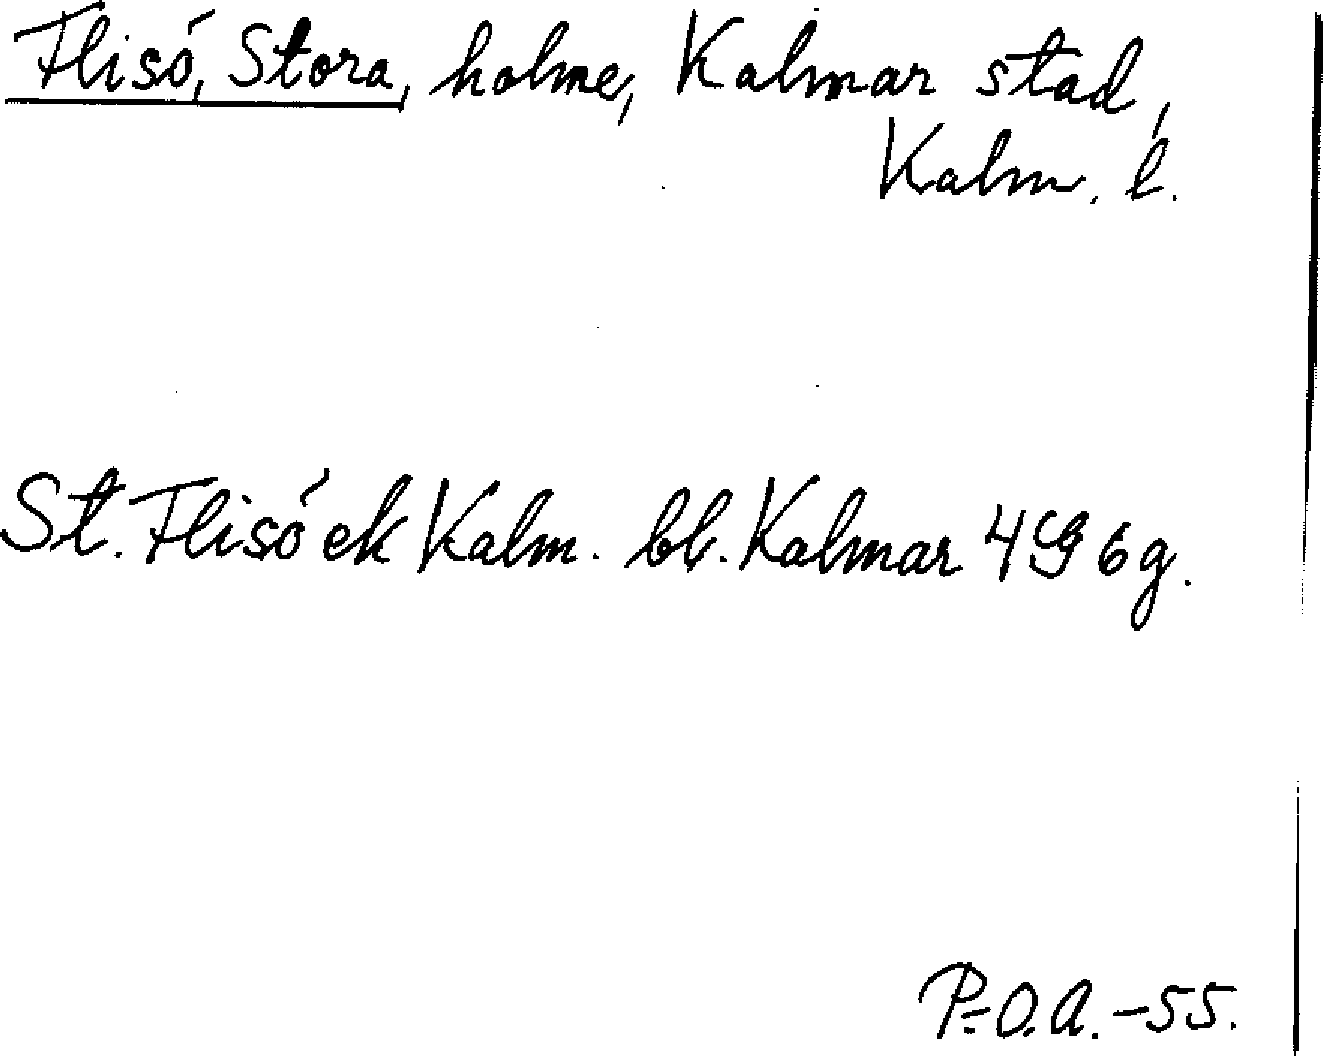 Flisö, Stora, holme, Kalmar stad,
Kalm. l.
St. Flisö ek Kalm. bl. Kalmar 4 S9 6g.
P.-O.A. -55.